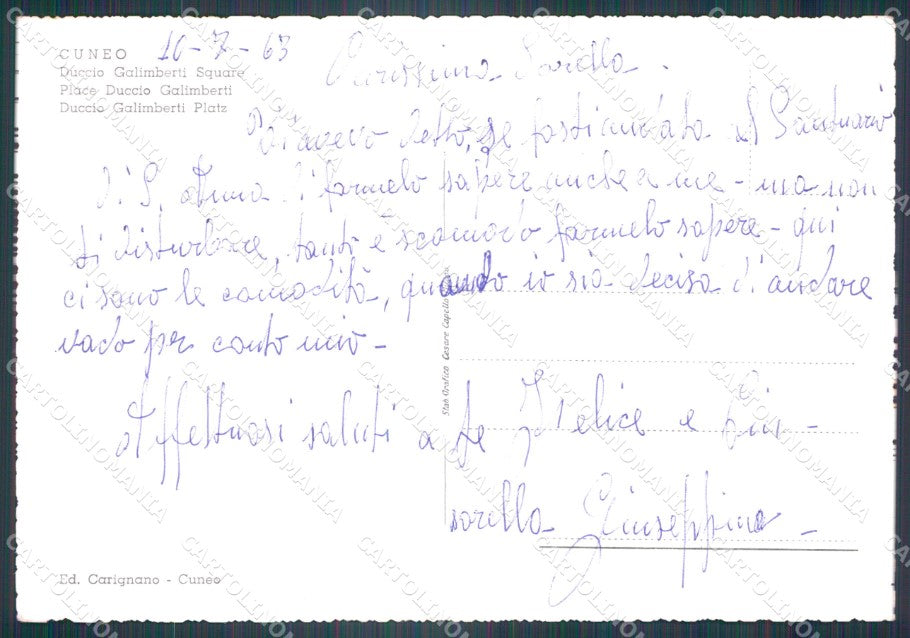 CUNEO 10-7-63
Duccio Galimberti Square
Place Duccio Galimberti
Duccio Galimberti Platz
Carissima Sorella.
Ti avevo detto, se fosti andata al Santuario
di S. Anna di farmelo sapere anche a me - ma non
ti disturbare, tanto è scomodo farmelo sapere - qui
ci sono le comodità, quando io sia decisa d'andare
vado per conto mio -
Affettuosi saluti a te Felice e
sorella Giuseppina -
Stab. Grafico Cesare
Ed. Carignano - Cuneo
CARTOLINOMANIA